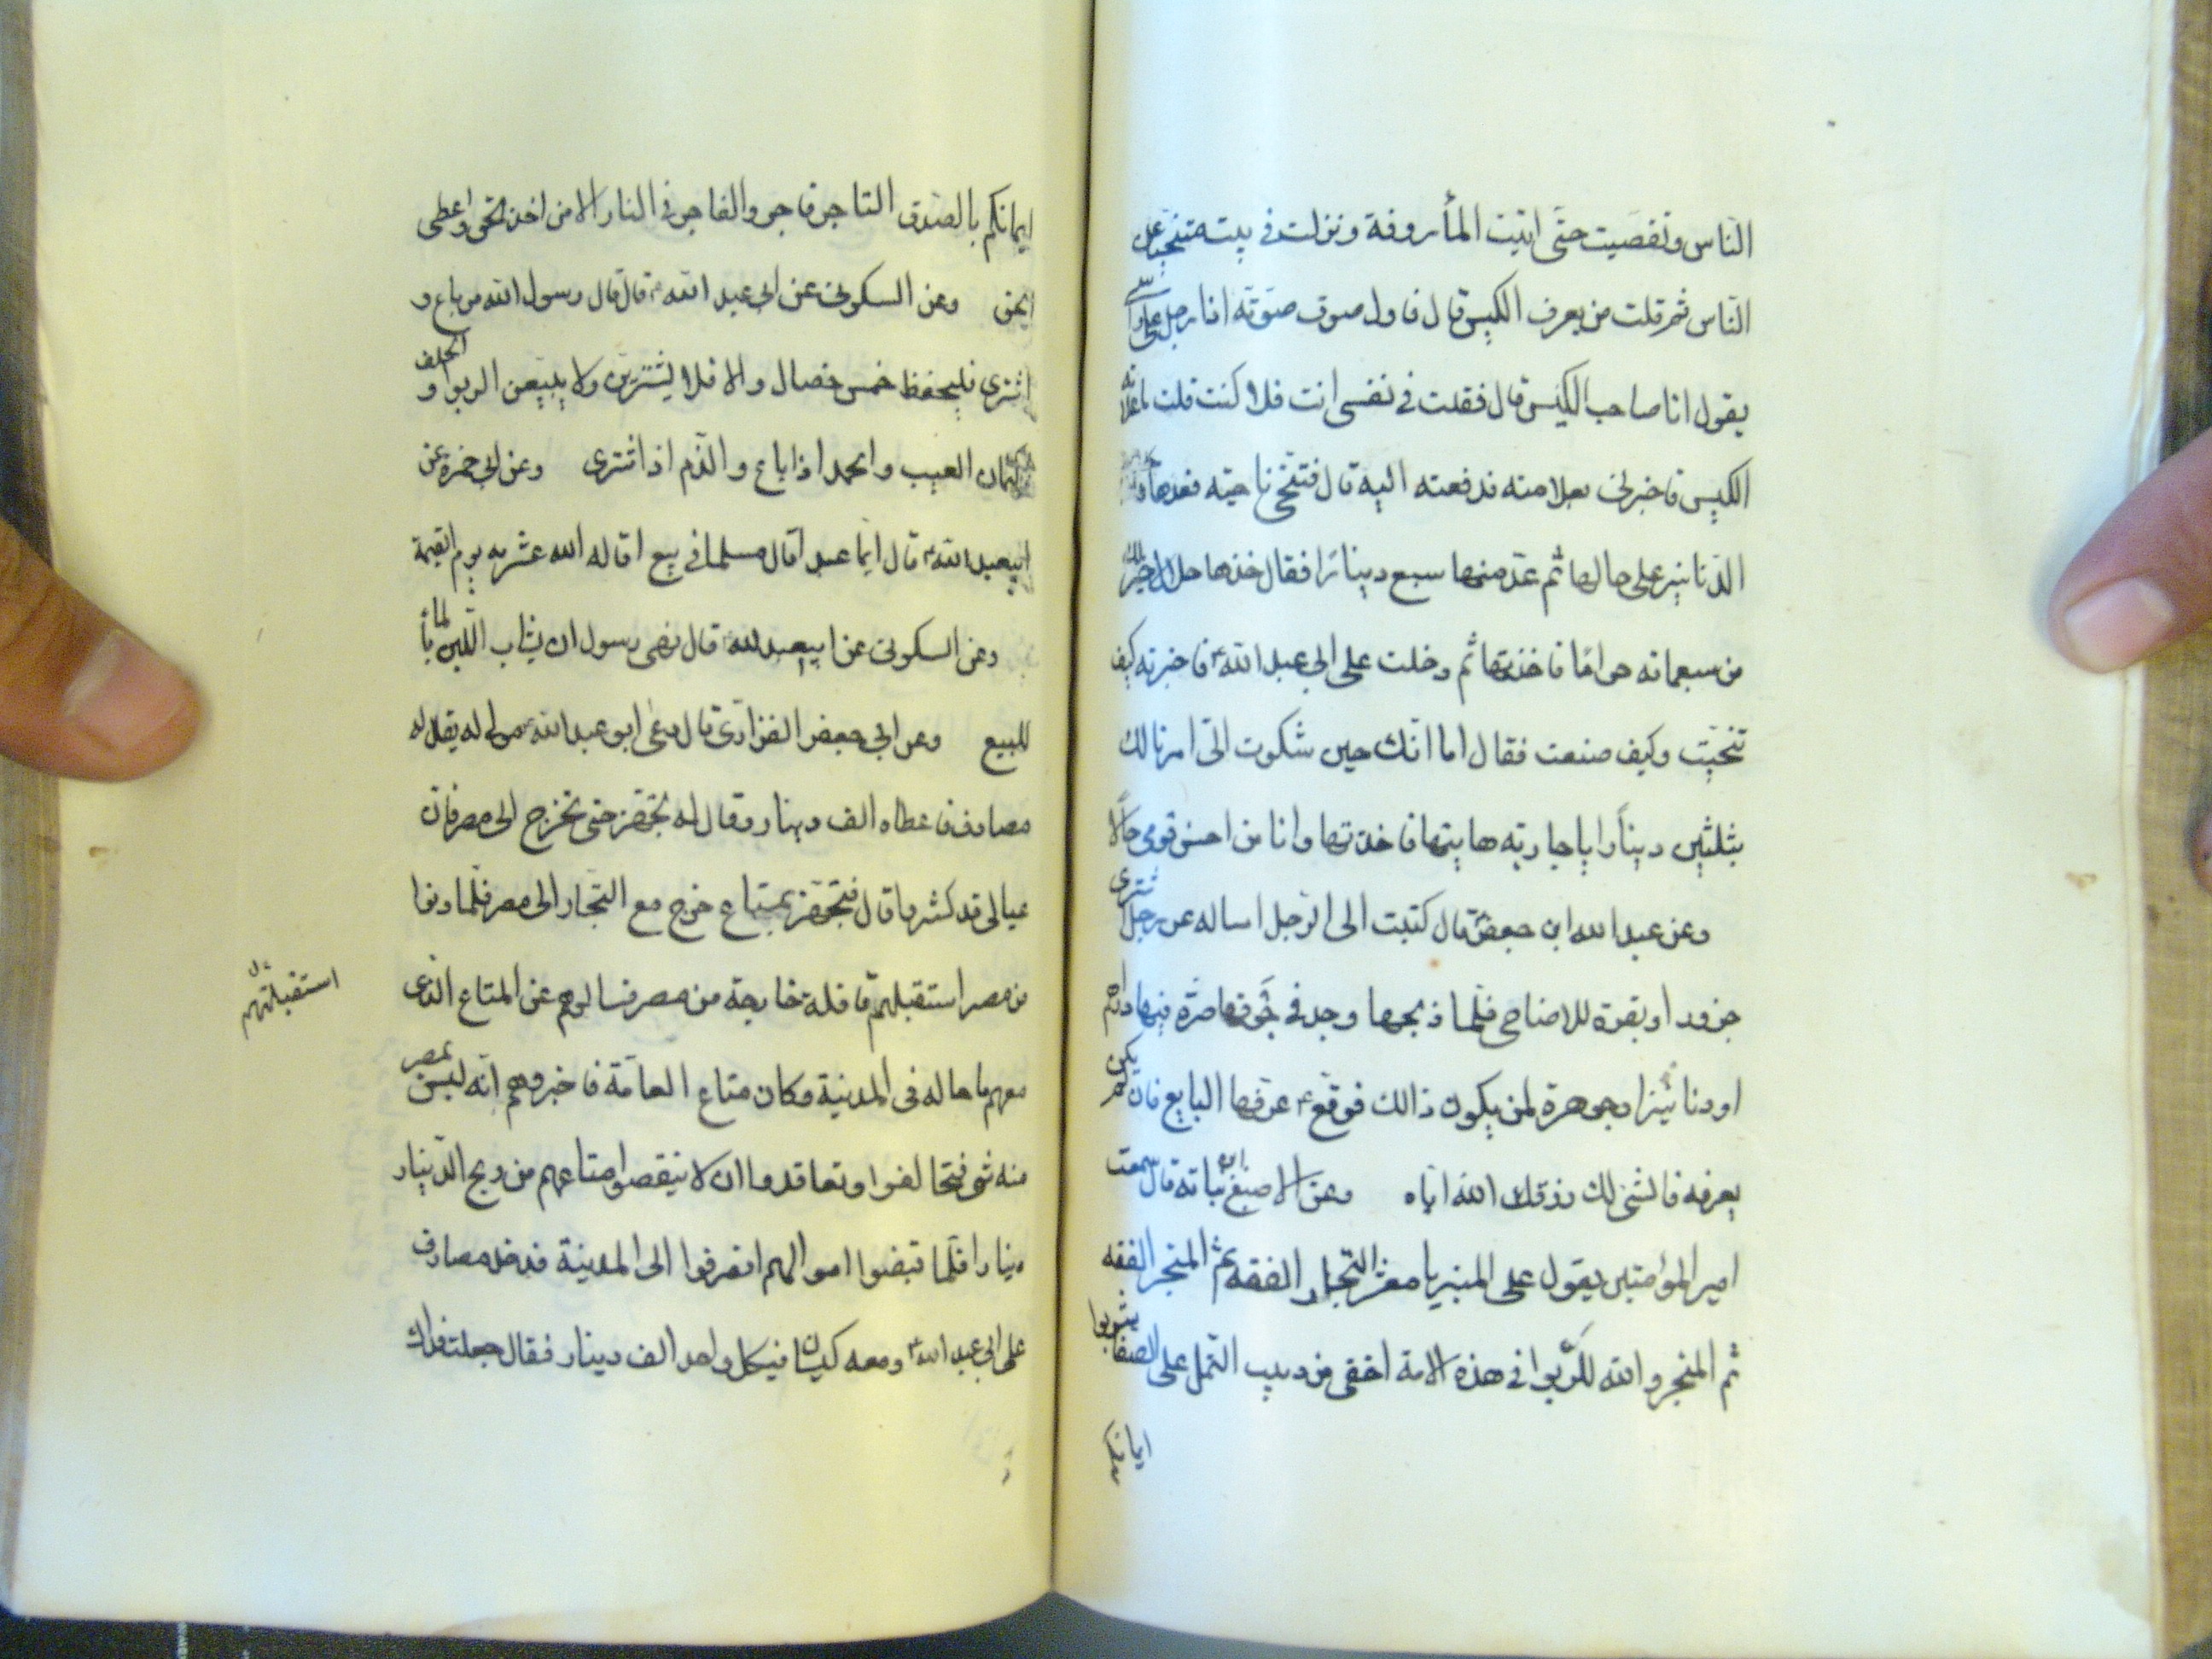 الناس وتفصيت حتى اتيت المأروفة ونزلت في بيت متنحيا عن
الناس ثم قلت من يعرف الكيس قال فاول صوت صوته انا رجل على راسي
يقول انا صاحب الكيس قال فقلت في نفسي انت فلا كنت قلت ما علامة
الكيس فاخبرني بعلامته فدفعته اليه قال فتنحى ناحيته فعدها
الدنانير على حالها ثم عد منها سبع دينارا فقال خذها حلالا خير لك
من سبعمائه حراما فاخذتها ثم دخلت على ابي عبد الله فاخبرته كيف
تنحيت وكيف صنعت فقال اما انك حين شكوت الي امرنا لك
بثلثين دينارا يا جاريه هايتها فاخذتها وانا من احسن قومي حالا
وعن عبد الله ابن جعفر قال كتبت الى الرجل اساله عن رجل اشترى
جزورا او بقرة للاضاحي فلما ذبحها وجد في جوفها صرة فيها دراهم
او دنانيرا وجوهرة لمن يكون ذالك فوقع عرفها البايع فان لم يكن
يعرفه فالشئ لك رزقك الله اياه وعن الاصبغ ابن نباته قال سمعت
امير المؤمنين يقول على المنبر يا معشر التجار الفقه ثم المتجر الفقه
ثم المتجر والله للربوا في هذه الامة اخفى من دبيب النمل على الصفا شوبوا
ايمانكم
ايمانكم بالصدق التاجر فاجر والفاجر في النار الا من اخذ الحق واعطى
الحق وعن السكوني عن ابي عبد الله قال قال رسول الله من باع و
اشترى فليحفظ خمس خصال والا فلا يشترين ولا يبيعن الربوا والحلف و
كتمان العيب والحمد اذا باع والذم اذا اشترى وعن ابي حمزه عن
ابيعبد الله قال ايما عبد اقال مسلما في بيع اقاله الله عشرته يوم القيمة
وعن السكوني عن ابيعبد الله قال نهى رسول ان يشاب اللبن بالمأ
للبيع وعن ابي جعفر الفزاري قال دعى ابو عبد الله مولى له يقال له
مصادف فاعطاه الف دينار وقال له تجهز حتى تخرج الى مصر فان
عيالى قد كثروا قال فتجهز بمتاع خرج مع التجار الى مصر فلما دنوا
من مصر استقبلهم قافلة خارجة من مصر فسالوهم عن المتاع الذى
استقبلتهم
معهم ما حاله فى المدينة وكان متاع العامة فاخبروهم انه ليس بمصر
منه شئ فتحالفوا وتعاقدوا ان لا ينقصوا متاعهم من ربح الدينار
دينارا فلما قبضوا اموالهم انصرفوا الى المدينة فدخل مصادف
على ابي عبد الله ومعه كيسان فيكل واحد الف دينار فقال جعلت فداك